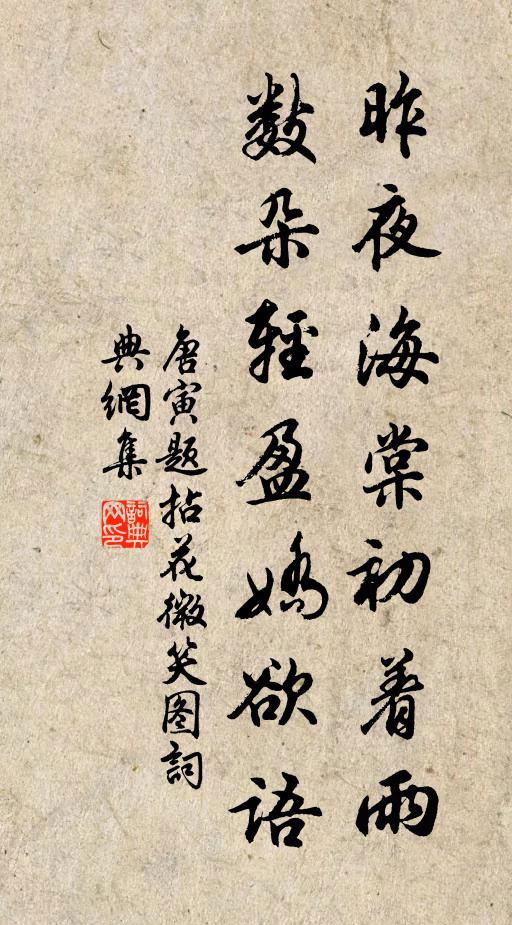 昨夜海棠初着雨
数朵輕盈嬌欲語
唐寅題拈花微笑图詞
典網集
詞典
网印